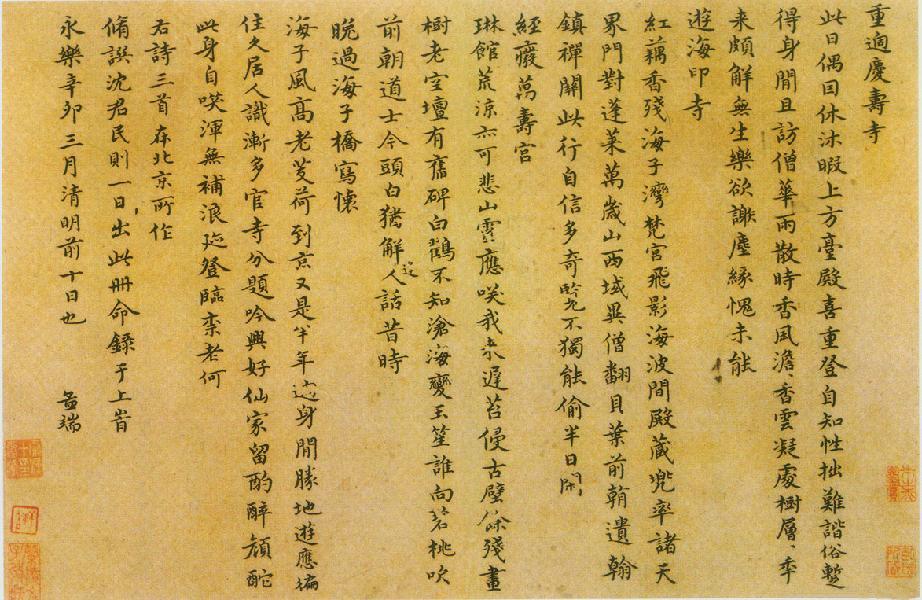 重適慶壽寺
此日偶因休沐暇上方臺殿喜重登自知性拙難諧俗暫
得身閒且訪僧華雨散時香風澹〻香雲凝處樹層〻年
来頗解無生樂欲謝塵緣愧未能
遊海印寺
紅藕香殘海子灣梵宮飛影海波間殿藏兜率諸天
界門對蓬萊萬歲山西域異僧翻貝葉前朝遺翰
鎮禪關此行自信多奇覽不獨能偷半日閒
經廢萬壽宮
琳館荒涼亦可悲山靈應咲我来遲苔侵古壁餘殘畫
樹老空壇有舊碑白鶴不知滄海變玉笙誰向碧桃吹
前朝道士今頭白猶解逢人話昔時
晚過海子橋寫懷
海子風高老芰荷到京又是半年過身閒勝地遊應遍
住久居人識漸多官寺分題吟興好仙家留酌醉顏酡
此身自咲渾無補浪跡登臨柰老何
右詩三首在北京所作
脩譔沈君民則一日出此冊命錄于上旹
永樂辛卯三月清明前十日也 孟端